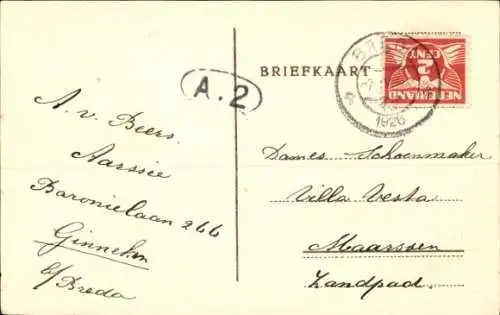 BRIEFKAART
A.2
2
CENT
NEDERLAND
BREDA
1926
A. v. Beers.
Aarssée
Baronielaan 266
Ginneken
b/Breda
Dames Schoenmaker
Villa Vesta
Maarssen
Zandpad.